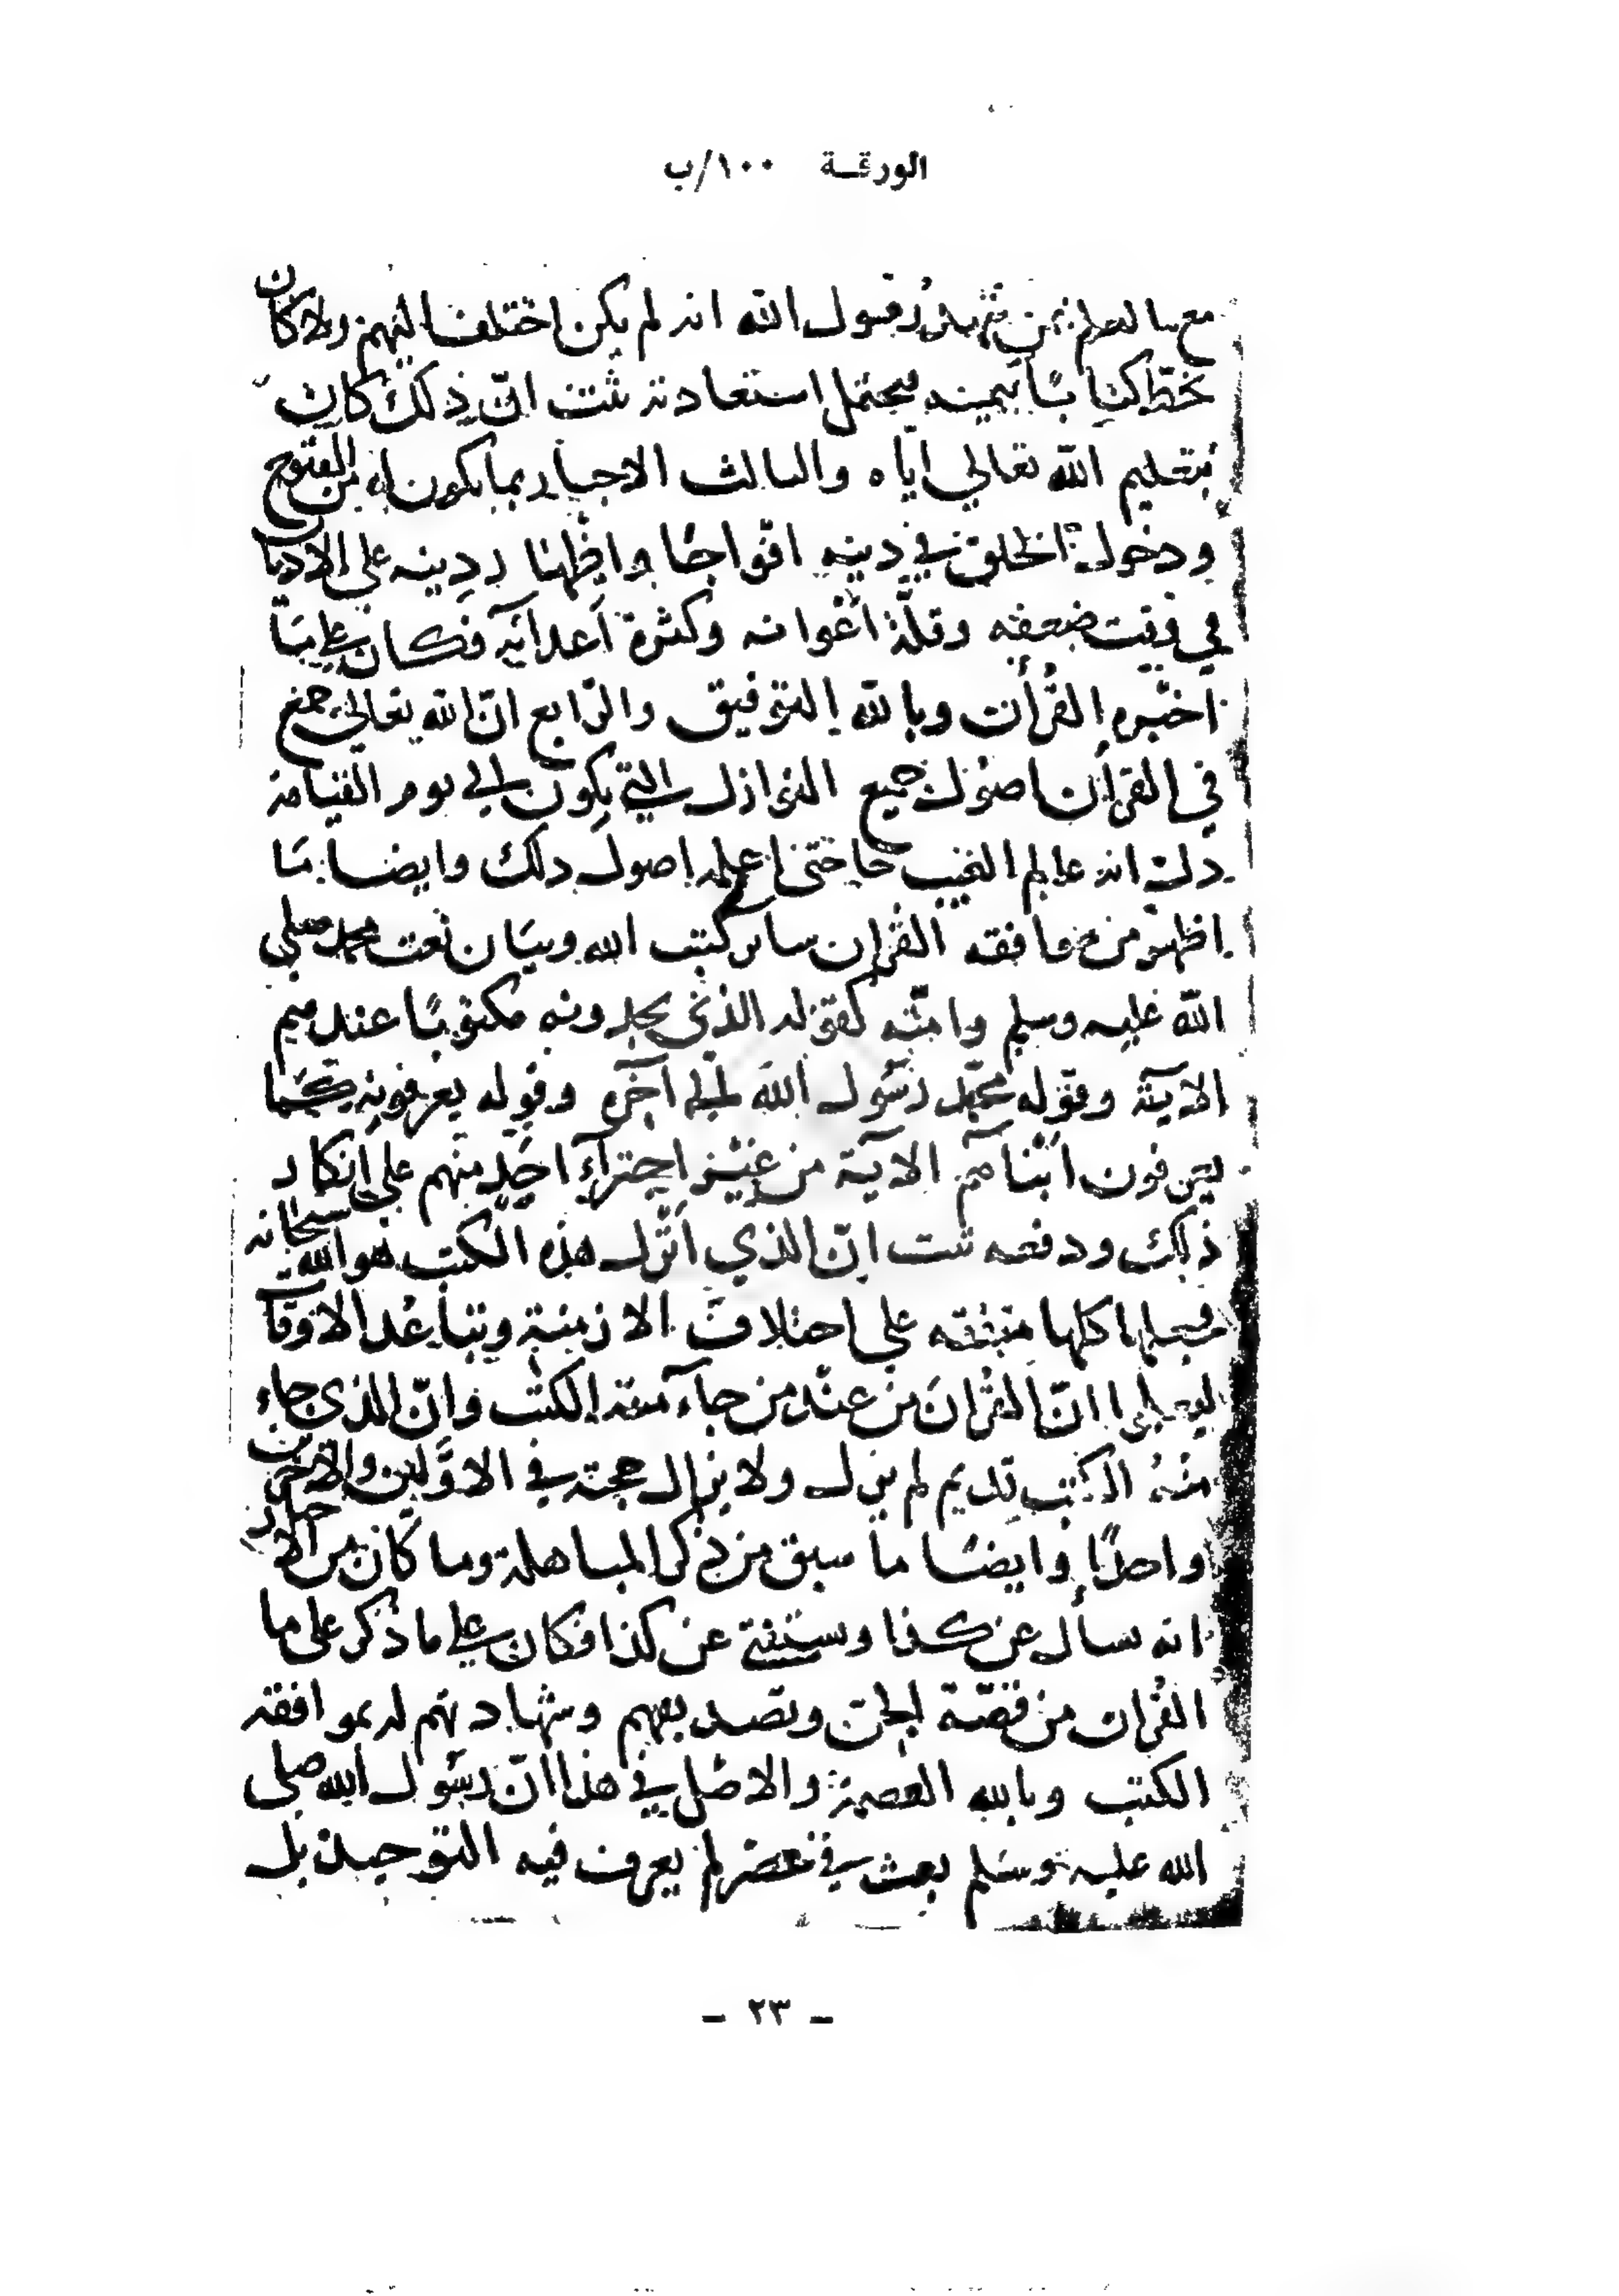 الورقة ١٠٠/ب
مع ما العلم ممن شهد رسول الله انه لم يكن اختلف اليهم ولا كان
يخط كتابًا بيمينه فيحتمل استعادته ثبت انّ ذلك كان
بتعليم الله تعالى اياه والثالث الاخبار بما يكون له من الفتوح
ودخول الخلق في دينه افواجًا واظهار دينه على الاديان
في وقت ضعفه وقلّة اعوانه وكثرة اعدآئه فكان على ما
اخبر به القرآن وبالله التوفيق والرابع انّ الله تعالى جمع
في القرآن اصول جميع النوازل التي يكون الى يوم القيامة
دلّ انه عالم الغيب حتى اعلم اصول ذلك وايضا ما
اظهر من موافقه القرآن ساير كتب الله وبيان نعت محمد صلى
الله عليه وسلم وامته كقوله الذي يجدونه مكتوبًا عندهم
الآية وقوله محمّد رسول الله الى آخره وقوله يعرفونه كما
يعرفون ابنآءهم الآية من غير اجتراء احد منهم على انكار
ذلك ودفعه ثبت انّ الذي انزل هذه الكتب هو الله سبحانه
فجعلها كلها متفقه على اختلاف الازمنة وتباعد الاوقات
ليعلموا انّ القرآن من عند من جآء منه الكتب وانّ الذي جاء
منه الكتب قديم لم يزل ولا يزال حجته في الاوّلين والآخرين
واحدًا وايضًا ما سبق من ذكر المباهلة وما كان من الاخبار
انه سأل عن كذا وستفتي عن كذا فكان على ما ذكر على ما
القرآن من قصّة الجن وتصديقهم وشهادتهم له بموافقة
الكتب وبالله العصمة والاصل في هذا انّ رسول الله صلى
الله عليه وسلم بعث في عصر لم يعرف فيه التوحيد بل
- ٢٣ -